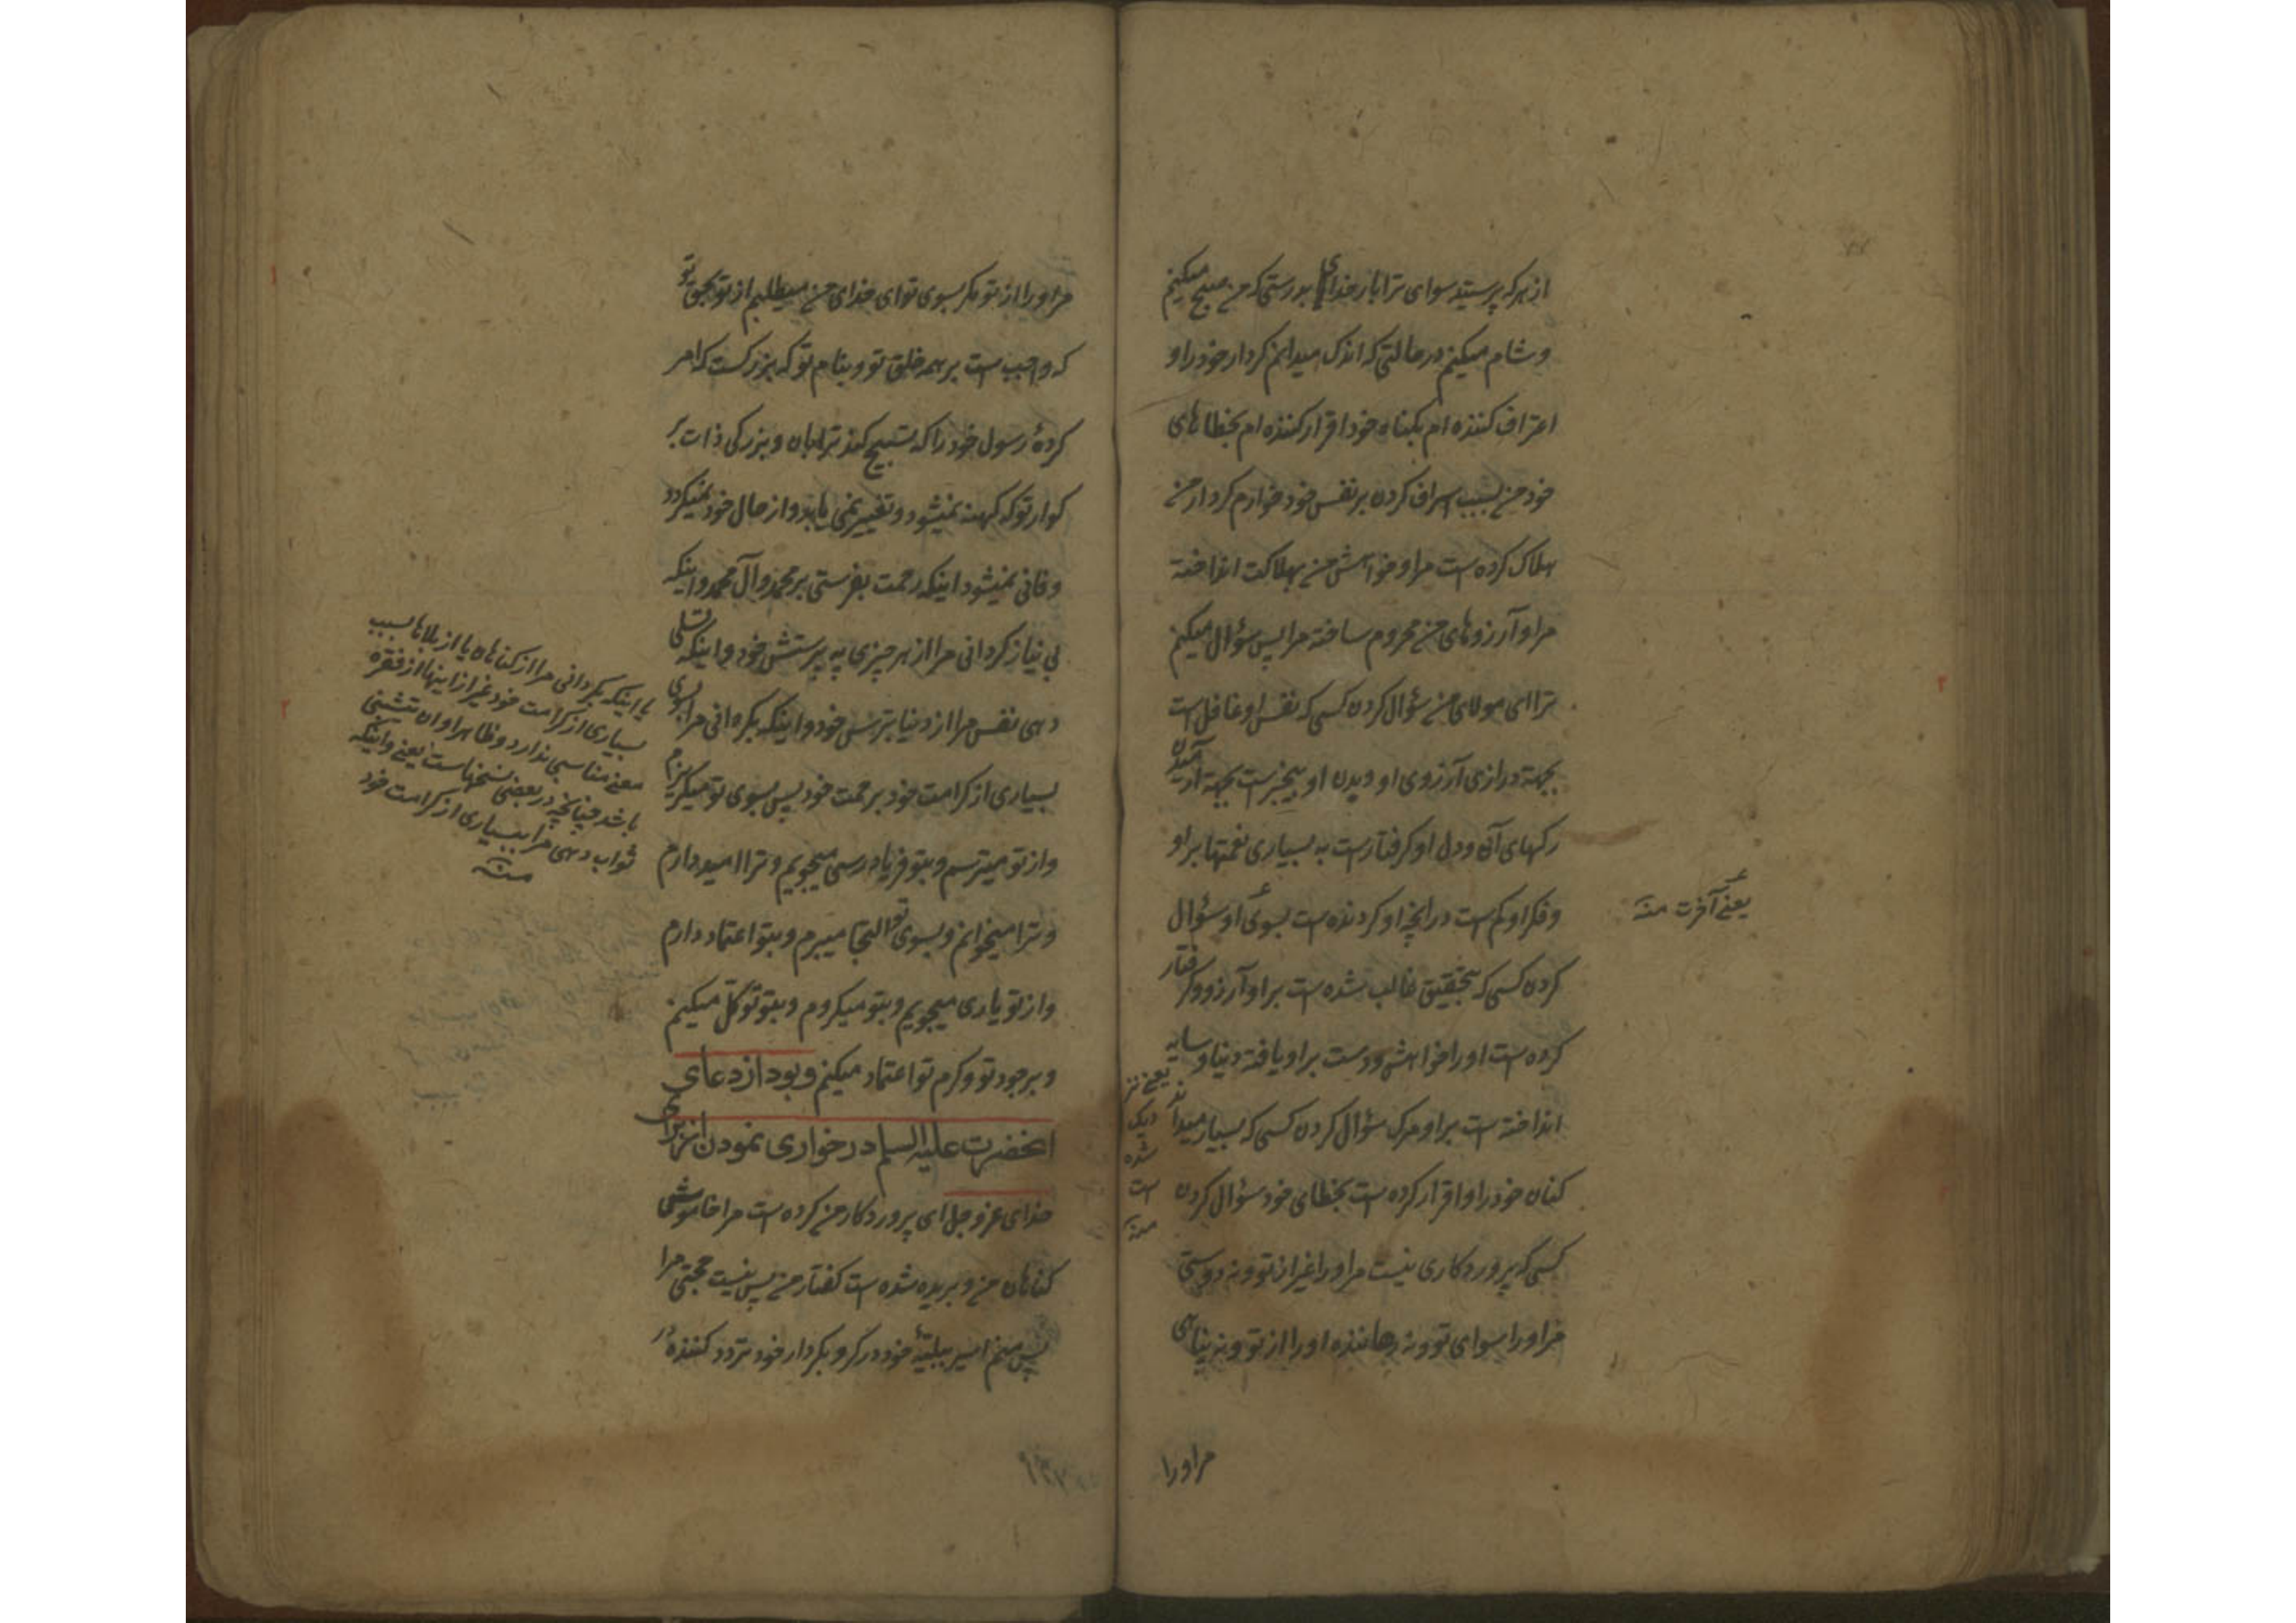 از هر که پرستید سوای ترا بار خدای بدرستی که من صبح میکنم
و شام میکنم در حالتی که اندک میدانم کردار خود را و
اعتراف کننده ام بکناه خود اقرار کننده ام بخطاهای
خود من بسبب اسراف کردن بر نفس خود خوارم کردار من
هلاک کرده است مرا و خواهش من بهلاکت انداخته
مرا و آرزوهای من محروم ساخته مرا پس سؤال میکنم
ترا ای مولای من سؤال کردن کسی که نفس او غافل است
بجهة درازی آرزوی او و بدن او بیخبرست بجهة آرمیدن
رکهای آن و دل او کرفتارست به بسیاری نعمتها بر او
و فکر او کم است در آنچه او کردنده است بسوی او سؤال
یعنے آخرت منه
کردن کسی که بتحقیق غالب شده است بر او آرزو و کرفتار
کرده است او را خواهش و دست بر او یافته دنیا و سایه
انداخته است بر او مرک سؤال کردن کسی که بسیار میداند
یعنے نز
دیک
شده
است
منه
کناه خود را و اقرار کرده است بخطای خود سؤال کردن
کسی که پروردکاری نیست مر او را غیر از تو و نه دوستی
مر او را سوای تو و نه رهاننده او را از تو و نه پناهی
مر او را
مر او را از تو مکر بسوی تو ای خدای من میطلبم از تو بحق تو
که واجب است بر همه خلق تو و بنام تو که بزرکست که امر
کردهٔ رسول خود را که تسبیح کند ترا بان و بزرکی ذات بز
کوار تو که کهنه نمیشود و تغییر نمی یابد و از حال خود نمیکردد
و فانی نمیشود اینکه رحمت بفرستی بر محمد و آل محمد و اینکه
بی نیاز کردانی مرا از هر چیزی به پرستش خود و اینکه تسلی
دهی نفس مرا از دنیا بترس خود و اینکه بکردانی مرا بسوی
بسیاری از کرامت خود برحمت خود پس بسوی تو میکریزم
و از تو میترسم و بتو فریاد رسی میجویم و ترا امیدوارم
و ترا میخوانم و بسوی تو التجا میبرم و بتو اعتماد دارم
و از تو یاری میجویم و بتو میکروم و بتو توکل میکنم
و بر جود تو و کرم تو اعتماد میکنم و بود از دعای
انحضرت علیه السلم در خواری نمودن از برای
خدای عز و جل ای پروردکار من کرده است مرا خاموش
کناهان من و بریده شده است کفتار من پس نیست حجتی مرا
پس منم اسیر ببلیهٔ خود در کرو بکردار خود تردد کننده در
یا اینکه بکردانی مرا از کناهان یا از بلاها بسبب
بسیاری از کرامت خود غیر از اینها از فقره
معنے مناسبی ندارد و ظاهرا و ان تثیبنی
باشد چنانچه در بعضی نسخهاست یعنے و اینکه
ثواب دهی مرا ببسیاری از کرامت خود
منه